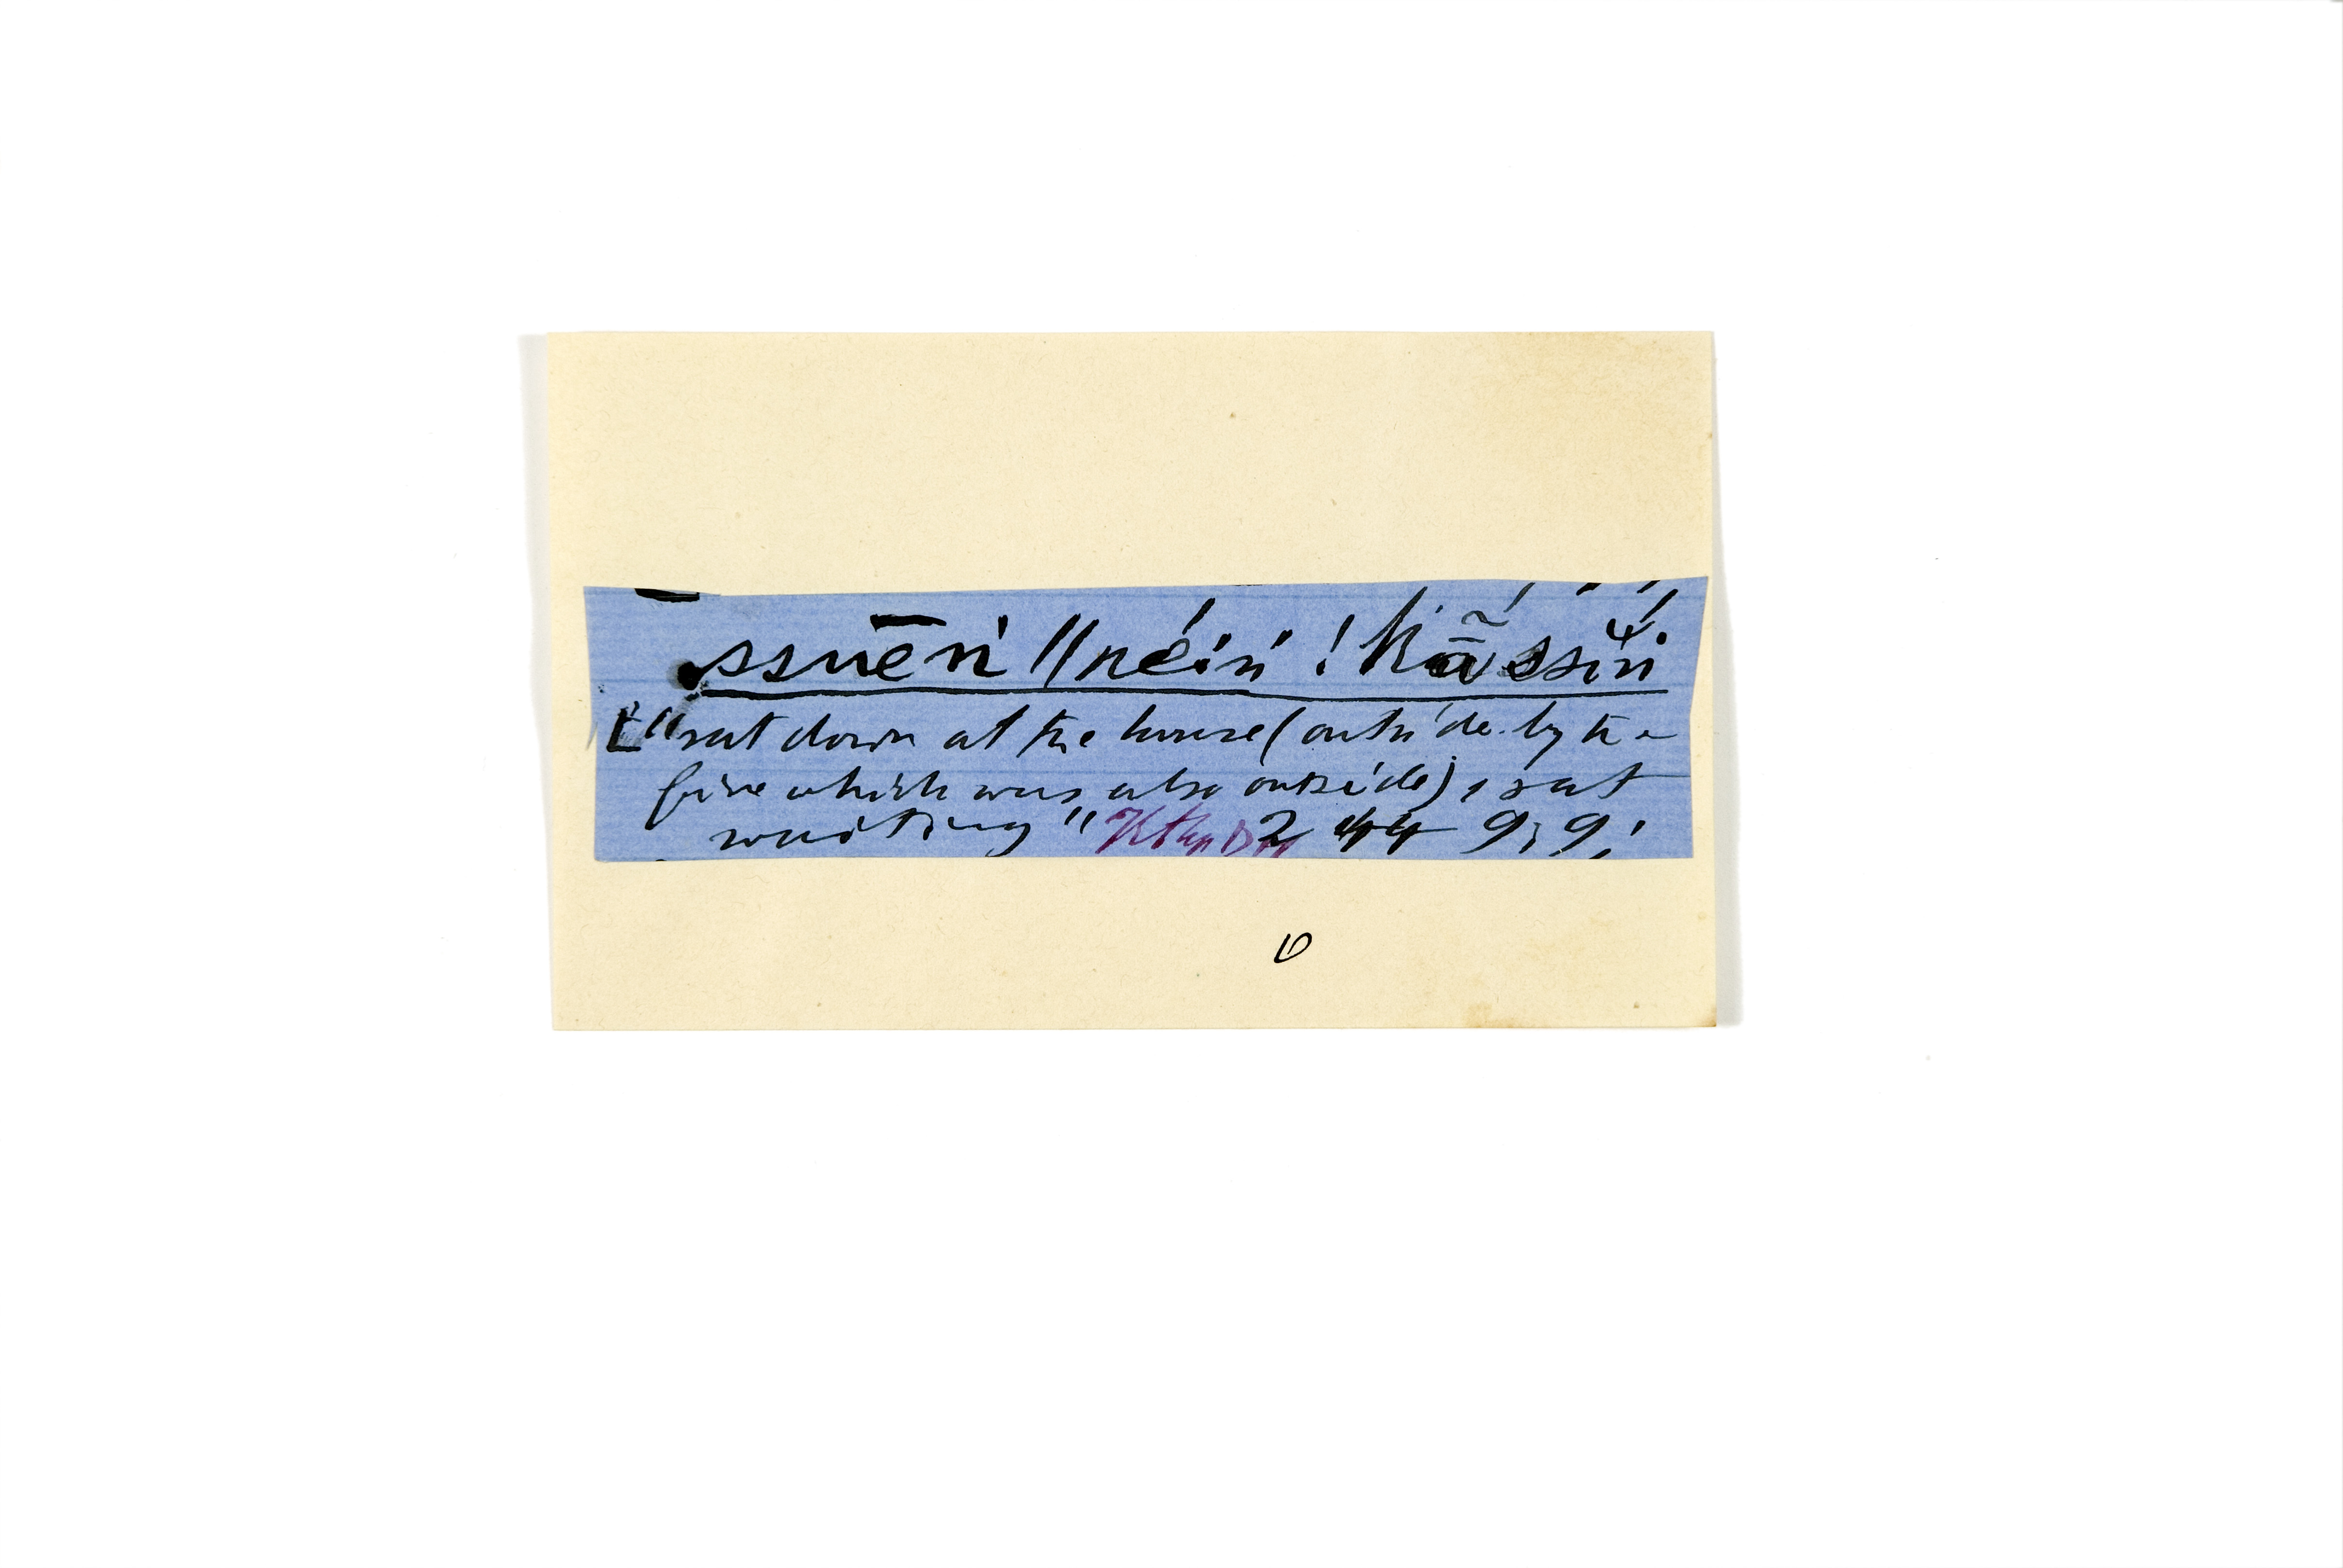 ssuēn ǁnéin ! kā̃ ssĭn
"sat down at the house (outside by the
fire which was also outside), sat
waiting" 2 44 9, 9,